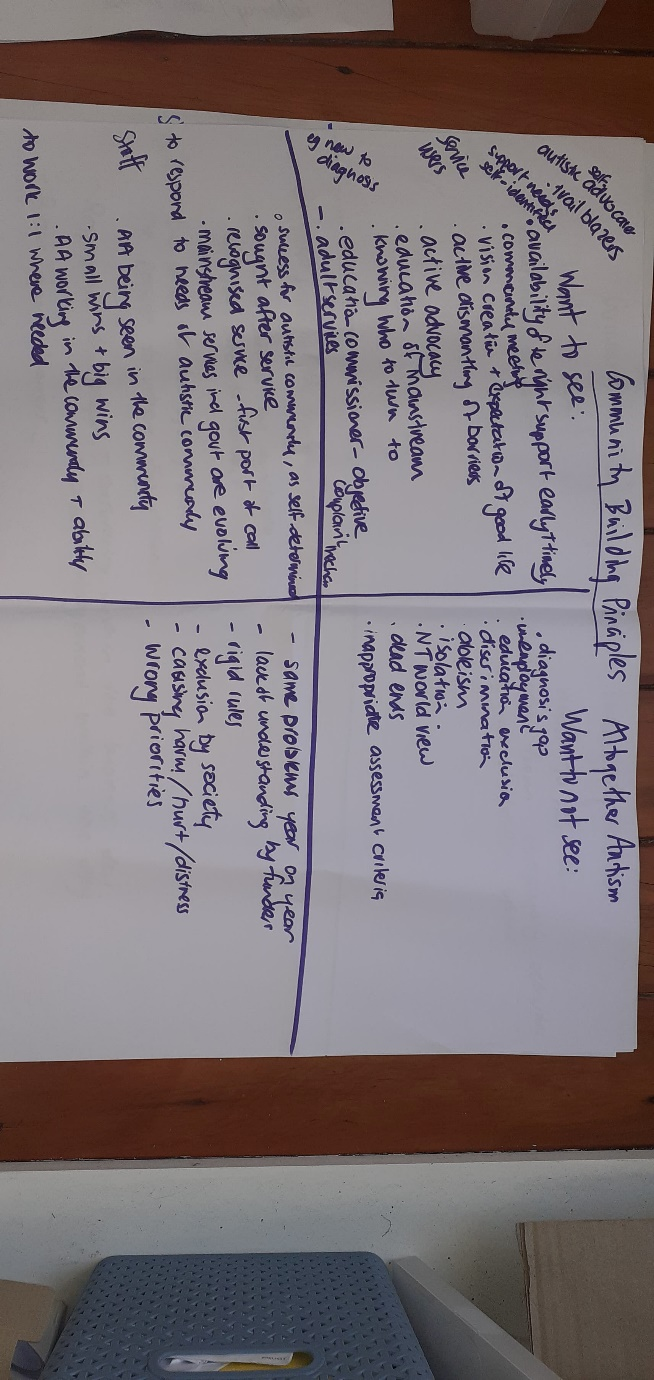 Community Building Principles Altogether Autism
self advocate
autistic
. trail blazers
support needs
self-identified
service
users
eg new to
diagnosis
Want to see:
. availability of the right support early + timely
. community meeting
. vision creation + expectation of good life
. active dismantling of barriers
. active advocacy
. education of mainstream
. knowing who to turn to
. education commissioner - objective
- . adult services
Want to not see:
. diagnosis gap
. unemployment
. education exclusion
. discrimination
. ableism
. isolation
. NT World view
. dead ends
. inappropriate assessment criteria
Staff
. success for autistic community, as self-determined
. sought after service
. recognised service - first port of call
. mainstream serves incl govt are evolving
to respond to needs of autistic community
. AA being seen in the community
. Small wins + big wins
. AA working in the community + ability
to work 1:1 where needed
- same problems year on year
- lack of understanding by funders
- rigid rules
- exclusion by society
- causing harm/hurt/distress
- wrong priorities